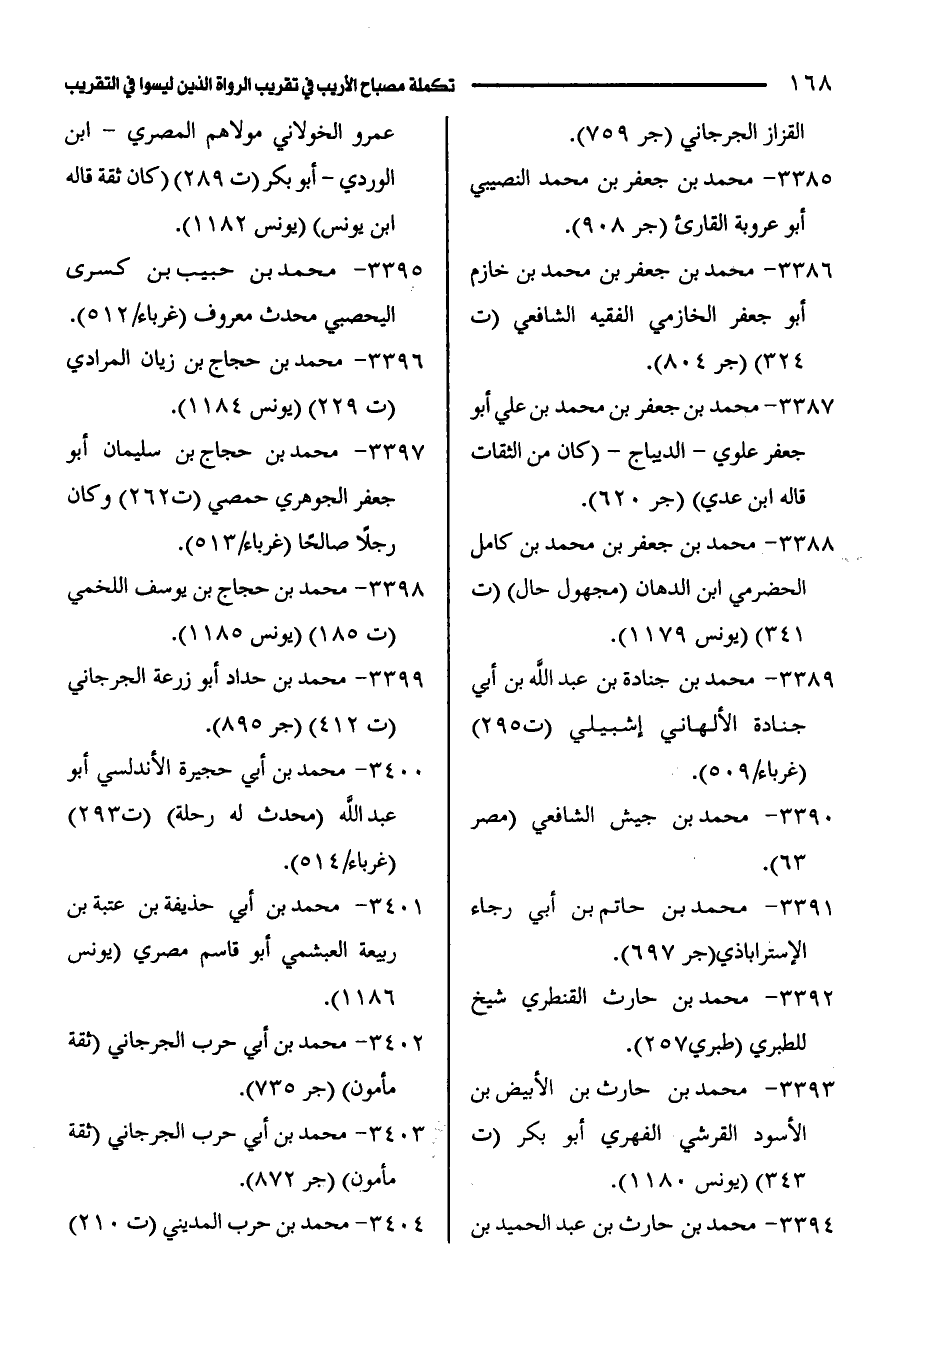 ١٦٨ تكملة مصباح الأريب في تقريب الرواة الذين ليسوا في التقريب
القزاز الجرجاني (جر ٧٥٩).
٣٣٨٥- محمد بن جعفر بن محمد النصيبي
أبو عروبة القارئ (جر ٩٠٨).
٣٣٨٦- محمد بن جعفر بن محمد بن خازم
أبو جعفر الخازمي الفقيه الشافعي (ت
٣٢٤) (جر ٨٠٤).
٣٣٨٧- محمد بن جعفر بن محمد بن علي أبو
جعفر علوي - الديباج - (كان من الثقات
قاله ابن عدي) (جر ٦٢٠).
٣٣٨٨- محمد بن جعفر بن محمد بن كامل
الحضرمي ابن الدهان (مجهول حال) (ت
٣٤١) (يونس ١١٧٩).
٣٣٨٩- محمد بن جنادة بن عبد اللَّه بن أبي
جنادة الألهاني إشبيلي (ت٢٩٥)
(غرباء/٥٠٩).
٣٣٩٠- محمد بن جيش الشافعي (مصر
٦٣).
٣٣٩١- محمد بن حاتم بن أبي رجاء
الإستراباذي(جر ٦٩٧).
٣٣٩٢- محمد بن حارث القنطري شيخ
للطبري (طبري٢٥٧).
٣٣٩٣- محمد بن حارث بن الأبيض بن
الأسود القرشي الفهري أبو بكر (ت
٣٤٣) (يونس ١١٨٠).
٣٣٩٤- محمد بن حارث بن عبد الحميد بن
عمرو الخولاني مولاهم المصري - ابن
الوردي - أبو بكر (ت ٢٨٩) (كان ثقة قاله
ابن يونس) (يونس ١١٨٢).
٣٣٩٥- محمد بن حبيب بن كسرى
اليحصبي محدث معروف (غرباء/٥١٢).
٣٣٩٦- محمد بن حجاج بن زيان المرادي
(ت ٢٢٩) (يونس ١١٨٤).
٣٣٩٧- محمد بن حجاج بن سليمان أبو
جعفر الجوهري حمصي (ت٢٦٢) وكان
رجلًا صالحًا (غرباء/٥١٣).
٣٣٩٨- محمد بن حجاج بن يوسف اللخمي
(ت ١٨٥) (يونس ١١٨٥).
٣٣٩٩- محمد بن حداد أبو زرعة الجرجاني
(ت ٤١٢) (جر ٨٩٥).
٣٤٠٠- محمد بن أبي حجيرة الأندلسي أبو
عبد اللَّه (محدث له رحلة) (ت٢٩٣)
(غرباء/٥١٤).
٣٤٠١- محمد بن أبي حذيفة بن عتبة بن
ربيعة العبشمي أبو قاسم مصري (يونس
١١٨٦).
٣٤٠٢- محمد بن أبي حرب الجرجاني (ثقة
مأمون) (جر ٧٣٥).
٣٤٠٣- محمد بن أبي حرب الجرجاني (ثقة
مأمون) (جر ٨٧٢).
٣٤٠٤- محمد بن حرب المديني (ت ٢١٠)